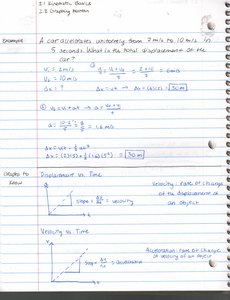 2.1 Kinematic Basics
2.2 Graphing Motion
Example
A car accelerates uniformly from 2 m/s to 10 m/s in
5 seconds. What is the total displacement of the
car?
V₁ = 2 m/s
V₂ = 10 m/s
Δx = ?
① V̄ = (V₁ + V₂)/2 = (2+10)/2 = 6 m/s
Δx = vt → Δx = (6)(5) = 30 m
② V₂ = V₁ + at → a =
a = (10-2)/5 = 8/5 = 1.6 m/s
Δx = V₁t + ½at²
Δx = (2)(5) + ½(1.6)(5)² = 30 m
Graphs to
Know
Displacement vs. Time
x
slope = Δx/Δt = velocity
t
Velocity: rate of change
of the displacement of
an object
Velocity vs. Time
v
slope = Δv/Δt = acceleration
t
Acceleration: rate of change
of velocity of an object